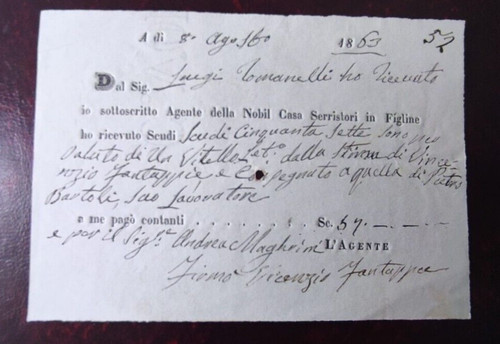 A di 8. Agosto 1863 57
Dal Sig. Luigi Tomanelli ho ricevuto
io sottoscritto Agente della Nobil Casa Serristori in Figline
ho ricevuto Scudi Scudi Cinquanta Sette sono per
Valuta di Una Vitello dalla Stima di Vince-
nzio Fantappie e Consegnato a quella di Pietro
Bartoli, suo Lavoratore
e me pagò contanti . . . . . . . Sc. 57. — . —
e per il Sig.r Andrea Magherini L'AGENTE
Firmo Vicenzio Fantappie